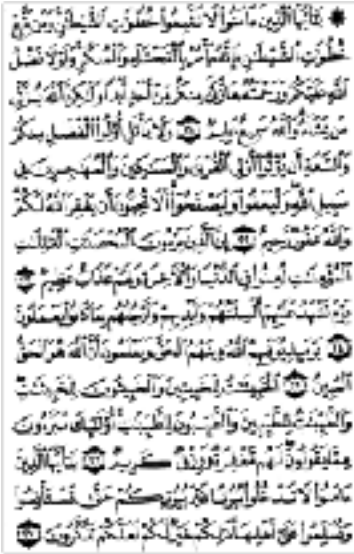 ۞ يَٰٓأَيُّهَا ٱلَّذِينَ ءَامَنُوا۟ لَا تَتَّبِعُوا۟ خُطُوَٰتِ ٱلشَّيْطَٰنِ وَمَن يَتَّبِعْ
خُطُوَٰتِ ٱلشَّيْطَٰنِ فَإِنَّهُۥ يَأْمُرُ بِٱلْفَحْشَآءِ وَٱلْمُنكَرِ وَلَوْلَا فَضْلُ
ٱللَّهِ عَلَيْكُمْ وَرَحْمَتُهُۥ مَا زَكَىٰ مِنكُم مِّنْ أَحَدٍ أَبَدًا وَلَٰكِنَّ ٱللَّهَ يُزَكِّى
مَن يَشَآءُ وَٱللَّهُ سَمِيعٌ عَلِيمٌ ٢١ وَلَا يَأْتَلِ أُو۟لُوا۟ ٱلْفَضْلِ مِنكُمْ
وَٱلسَّعَةِ أَن يُؤْتُوٓا۟ أُو۟لِى ٱلْقُرْبَىٰ وَٱلْمَسَٰكِينَ وَٱلْمُهَٰجِرِينَ فِى
سَبِيلِ ٱللَّهِ وَلْيَعْفُوا۟ وَلْيَصْفَحُوٓا۟ أَلَا تُحِبُّونَ أَن يَغْفِرَ ٱللَّهُ لَكُمْ
وَٱللَّهُ غَفُورٌ رَّحِيمٌ ٢٢ إِنَّ ٱلَّذِينَ يَرْمُونَ ٱلْمُحْصَنَٰتِ ٱلْغَٰفِلَٰتِ
ٱلْمُؤْمِنَٰتِ لُعِنُوا۟ فِى ٱلدُّنْيَا وَٱلْءَاخِرَةِ وَلَهُمْ عَذَابٌ عَظِيمٌ ٢٣
يَوْمَ تَشْهَدُ عَلَيْهِمْ أَلْسِنَتُهُمْ وَأَيْدِيهِمْ وَأَرْجُلُهُم بِمَا كَانُوا۟ يَعْمَلُونَ
٢٤ يَوْمَئِذٍ يُوَفِّيهِمُ ٱللَّهُ دِينَهُمُ ٱلْحَقَّ وَيَعْلَمُونَ أَنَّ ٱللَّهَ هُوَ ٱلْحَقُّ
ٱلْمُبِينُ ٢٥ ٱلْخَبِيثَٰتُ لِلْخَبِيثِينَ وَٱلْخَبِيثُونَ لِلْخَبِيثَٰتِ
وَٱلطَّيِّبَٰتُ لِلطَّيِّبِينَ وَٱلطَّيِّبُونَ لِلطَّيِّبَٰتِ أُو۟لَٰٓئِكَ مُبَرَّءُونَ
مِمَّا يَقُولُونَ لَهُم مَّغْفِرَةٌ وَرِزْقٌ كَرِيمٌ ٢٦ يَٰٓأَيُّهَا ٱلَّذِينَ
ءَامَنُوا۟ لَا تَدْخُلُوا۟ بُيُوتًا غَيْرَ بُيُوتِكُمْ حَتَّىٰ تَسْتَأْنِسُوا۟
وَتُسَلِّمُوا۟ عَلَىٰٓ أَهْلِهَا ذَٰلِكُمْ خَيْرٌ لَّكُمْ لَعَلَّكُمْ تَذَكَّرُونَ ٢٧